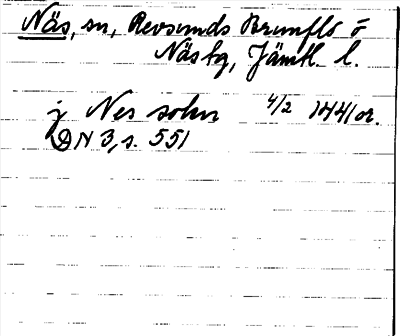 Näs, sn, Revsunds Brunflo o
Näs tg, Jämtl. l.
j Nes sokn 4/2 1441 or.
DN 3, s. 551